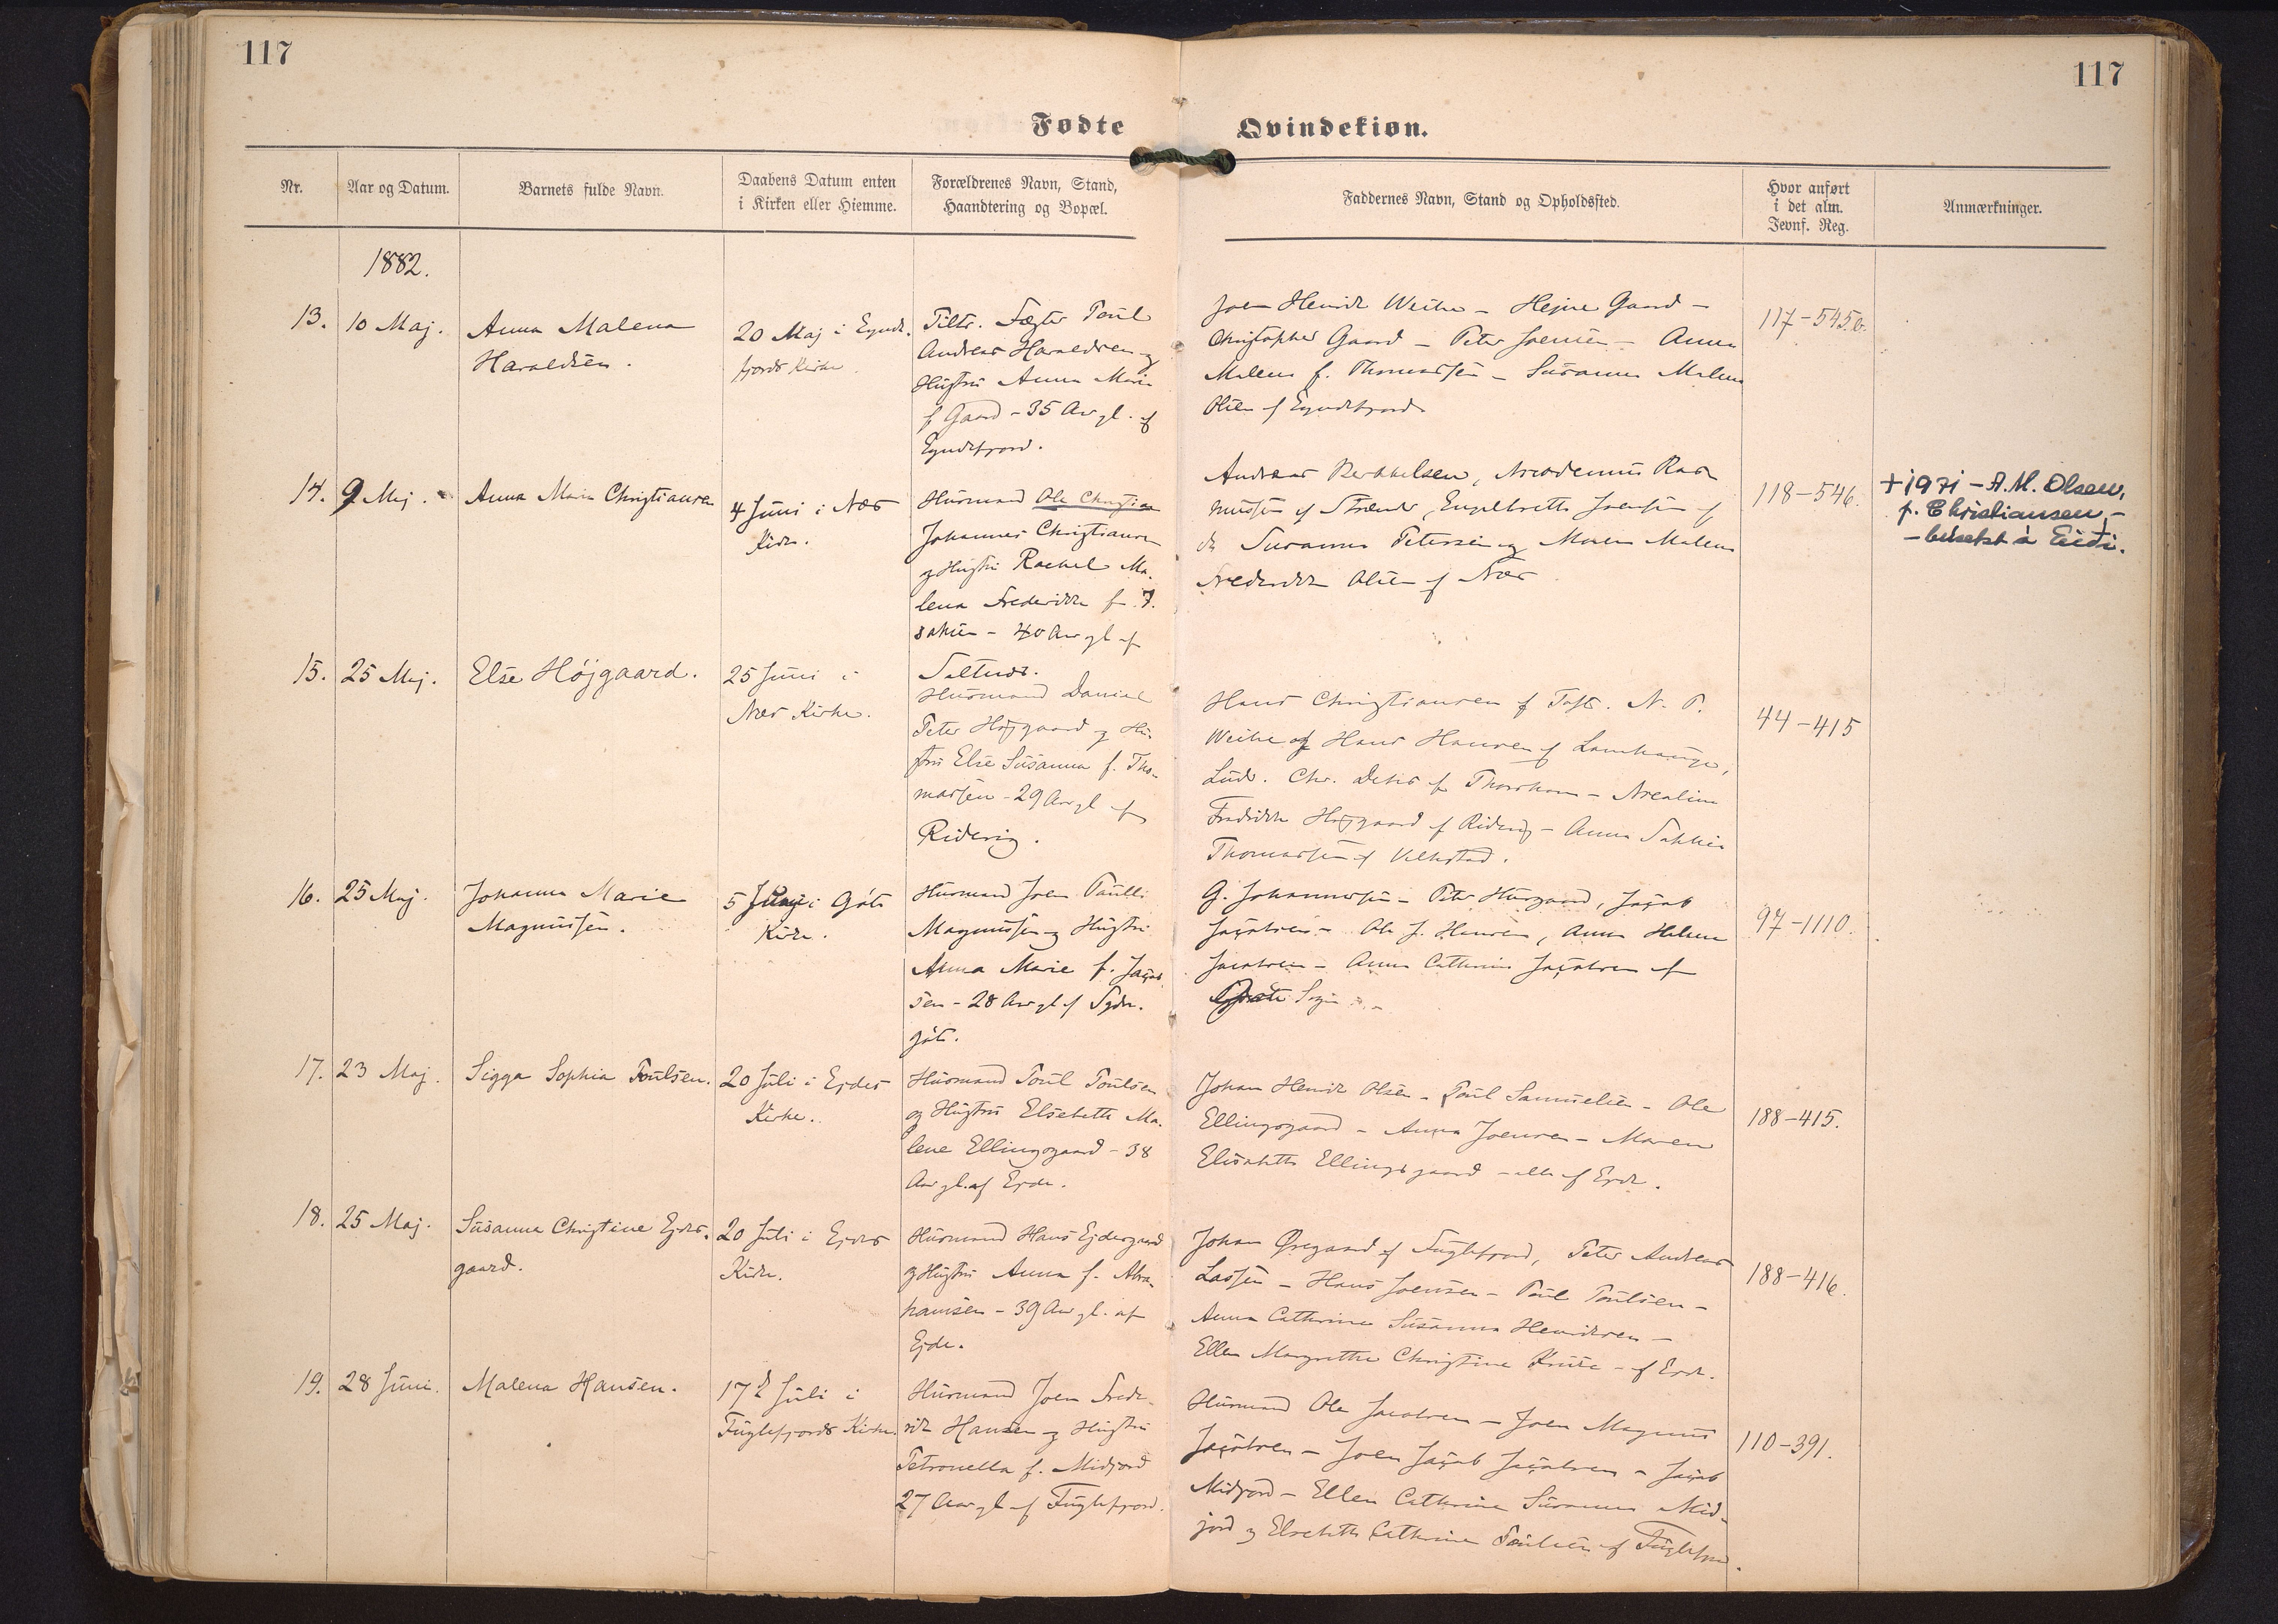 117
117
Fødte
Qvindekiøn.
Nr.
Aar og Datum.
Barnets fulde Navn.
Daabens Datum enten
i Kirken eller Hiemme.
Forældrenes Navn, Stand,
Haandtering og Bopæl.
Faddernes Navn, Stand og Opholdssted.
Hvor anført
i det alm.
Jevnf. Reg.
Anmærkninger.
1882.
13.
10 Maj.
Anna Malena
Haraldsen.
20 Maj i Eynde-
fjords Kirke.
Tiltr. Fæster Poul
Andreas Haraldsen og
Hustru Anna Marie
f. Gaard - 35 Aar gl. af
Eyndefjord.
Joen Henrik Weihe - Hejne Gaard -
Christopher Gaard - Peter Joensen - Anna
Malene f. Thomassen - Susanna Malene
Olsen af Eyndefjord
117-545.b.
14.
9 Maj.
Anna Maria Christiansen
4 Juni i Næs
Kirke.
Husmand Ole Christian
Johannes Christiansen
og Hustru Rachel Ma-
lena Frederikke f. I-
saksen - 40 Aar gl. af
Saltnæs.
Andreas Berthelsen, Nicodemus Ras-
mussen af Strænder, Engelbreth Joensen af
do Susanna Petersen og Maren Malene
Frederikke Olsen af Næs
118-546.
+1971 - A.M. Olsen,
f. Christiansen, -
- búsett á Eiði.
15.
25 Maj.
Else Højgaard.
25 Juni i
Næs Kirke.
Husmand Daniel
Peter Højgaard og Hu-
stru Else Susanna f. Tho-
massen - 29 Aar gl. af
Ridevig.
Hans Christiansen af Toft. N. P.
Weihe og Hans Hansen af Lamhauge,
Lud. Chr. Debes af Thorshavn - Nicoline
Fredrikke Højgaard af Ridevig - Anna
Thomassen af
44-415
16.
25 Maj.
Johanna Marie
Magnussen.
5 Juni i Gøte
Kirke.
Husmand Joen Poulli
Magnussen og Hustru
Anna Marie f. Jacob-
sen - 28 Aar gl. af Sydr-
gøte.
G. Johannessen - Peter Husgaard, Jacob
Jacobsen - Ole J. Hansen, Anna Helene
Jacobsen - Anna Cathrine Jacobsen af
Gøte Sogn
97-1110.
17.
23 Maj.
Sigga Sophia Poulsen.
20 Juli i Ejdes
Kirke.
Husmand Poul Poulsen
og Hustru Elsebeth Ma-
lene Ellingsgaard - 38
Aar gl. af Ejde.
Johan Henrik Olsen - Poul Samuelsen - Ole
Ellingsgaard - Anna Joensen - Maren
Elisabeth Ellingsgaard - alle af Ejde.
188-415.
18.
25 Maj.
Susanna Christine Ejdes-
gaard.
20 Juli i Ejdes
Kirke.
Husmand Hans Ejdesgaard
og Hustru Anna f. Abra-
hamsen - 39 Aar gl. af
Ejde.
Johan Øregaard af Fuglefjord, Peter Andreas
Lassen - Hans Joensen - Poul Poulsen -
Anna Cathrine Susanna Henriksen -
Ellen Margrethe Christine Kruse - af Ejde.
188-416.
19.
28 Juni.
Malena Hansen.
17d Juli i
Fuglefjords Kirke.
Husmand Joen Frede-
rik Hansen og Hustru
Petronella f. Midjord
27 Aar gl. af Fuglefjord.
Husmand Ole Jacobsen - Joen Magnus
Jacobsen - Joen Jacob Jacobsen - Jacob
Midjord - Ellen Cathrine Susanna Mid-
jord og Elsebeth Cathrine Poulsen af Fuglefjord.
110-391.